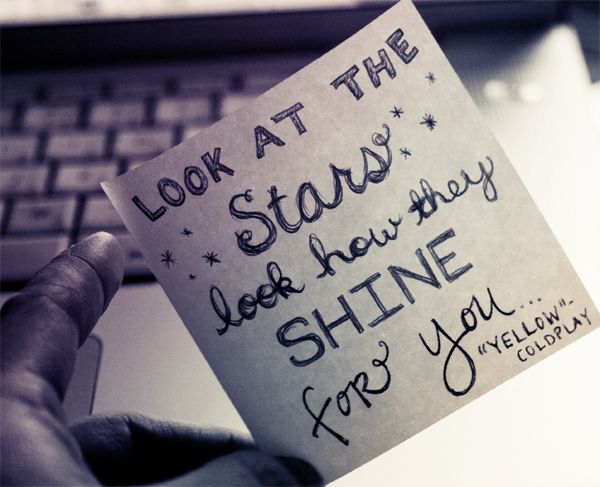 LOOK AT THE
Stars
look how they
SHINE
for you...
"YELLOW"-
COLDPLAY